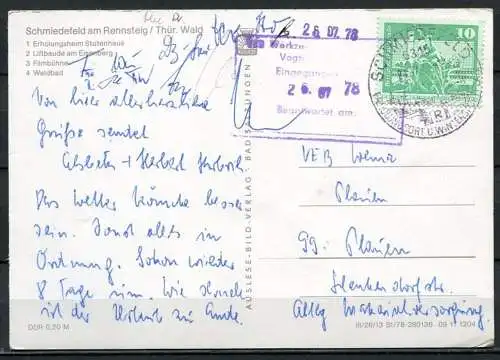 Schmiedefeld am Rennsteig / Thür. Wald
1 Erholungsheim Stutenhaus
2 Luftbaude am Eisenberg
3 Filmbühne
4 Waldbad
Von hier allerherzliche
Grüße sendet
Elsbeter + Herbert
Das Wetter könnte besser
sein. Sonst alles in
Ordnung. Schon wieder
8 Tage um. Wie schnell
ist der Urlaub zu Ende.
DDR 0,20 M
AUSLESE-BILD-VERLAG · BAD SALZUNGEN
26.07.78
VEB Werkzeu
Vogt
Eingegangen
26. 07 78
Beantwortet am:
10
VEB Wema
Plauen
99 Plauen
Abtlg Materialversorgung
III/26/13 St/78-280136 09 11 1204